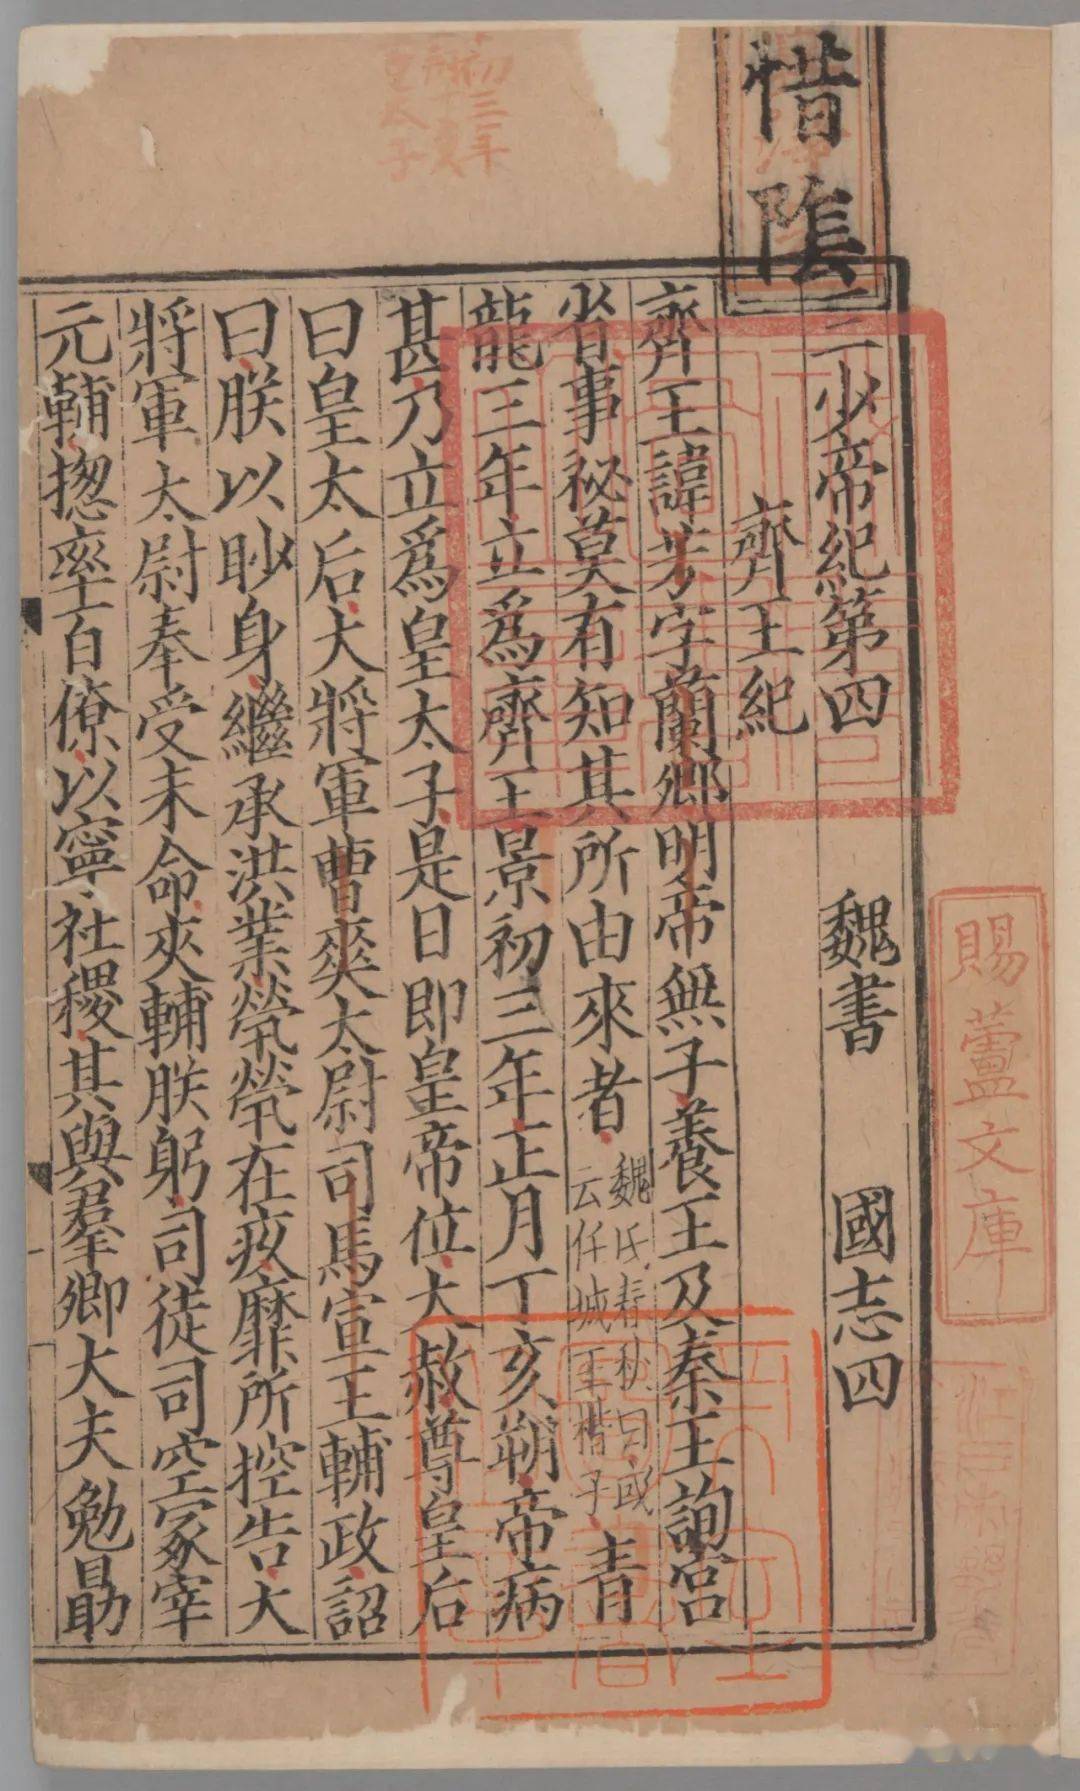 惜陰
三少帝紀第四 魏書 國志四
齊王紀
齊王諱芳字蘭卿明帝無子養王及秦王詢宮
省事祕莫有知其所由來者魏氏春秋曰或云任城王楷子青
龍三年立爲齊王景初三年正月丁亥朔帝病
甚乃立爲皇太子是日即皇帝位大赦尊皇后
曰皇太后大將軍曹爽太尉司馬宣王輔政詔
曰朕以眇身繼承洪業煢煢在疚靡所控告大
將軍太尉奉受末命夾輔朕躬司徒司空冢宰
元輔揔率百僚以寧社稷其與羣卿大夫勉勗
賜蘆文庫
初三年
太子